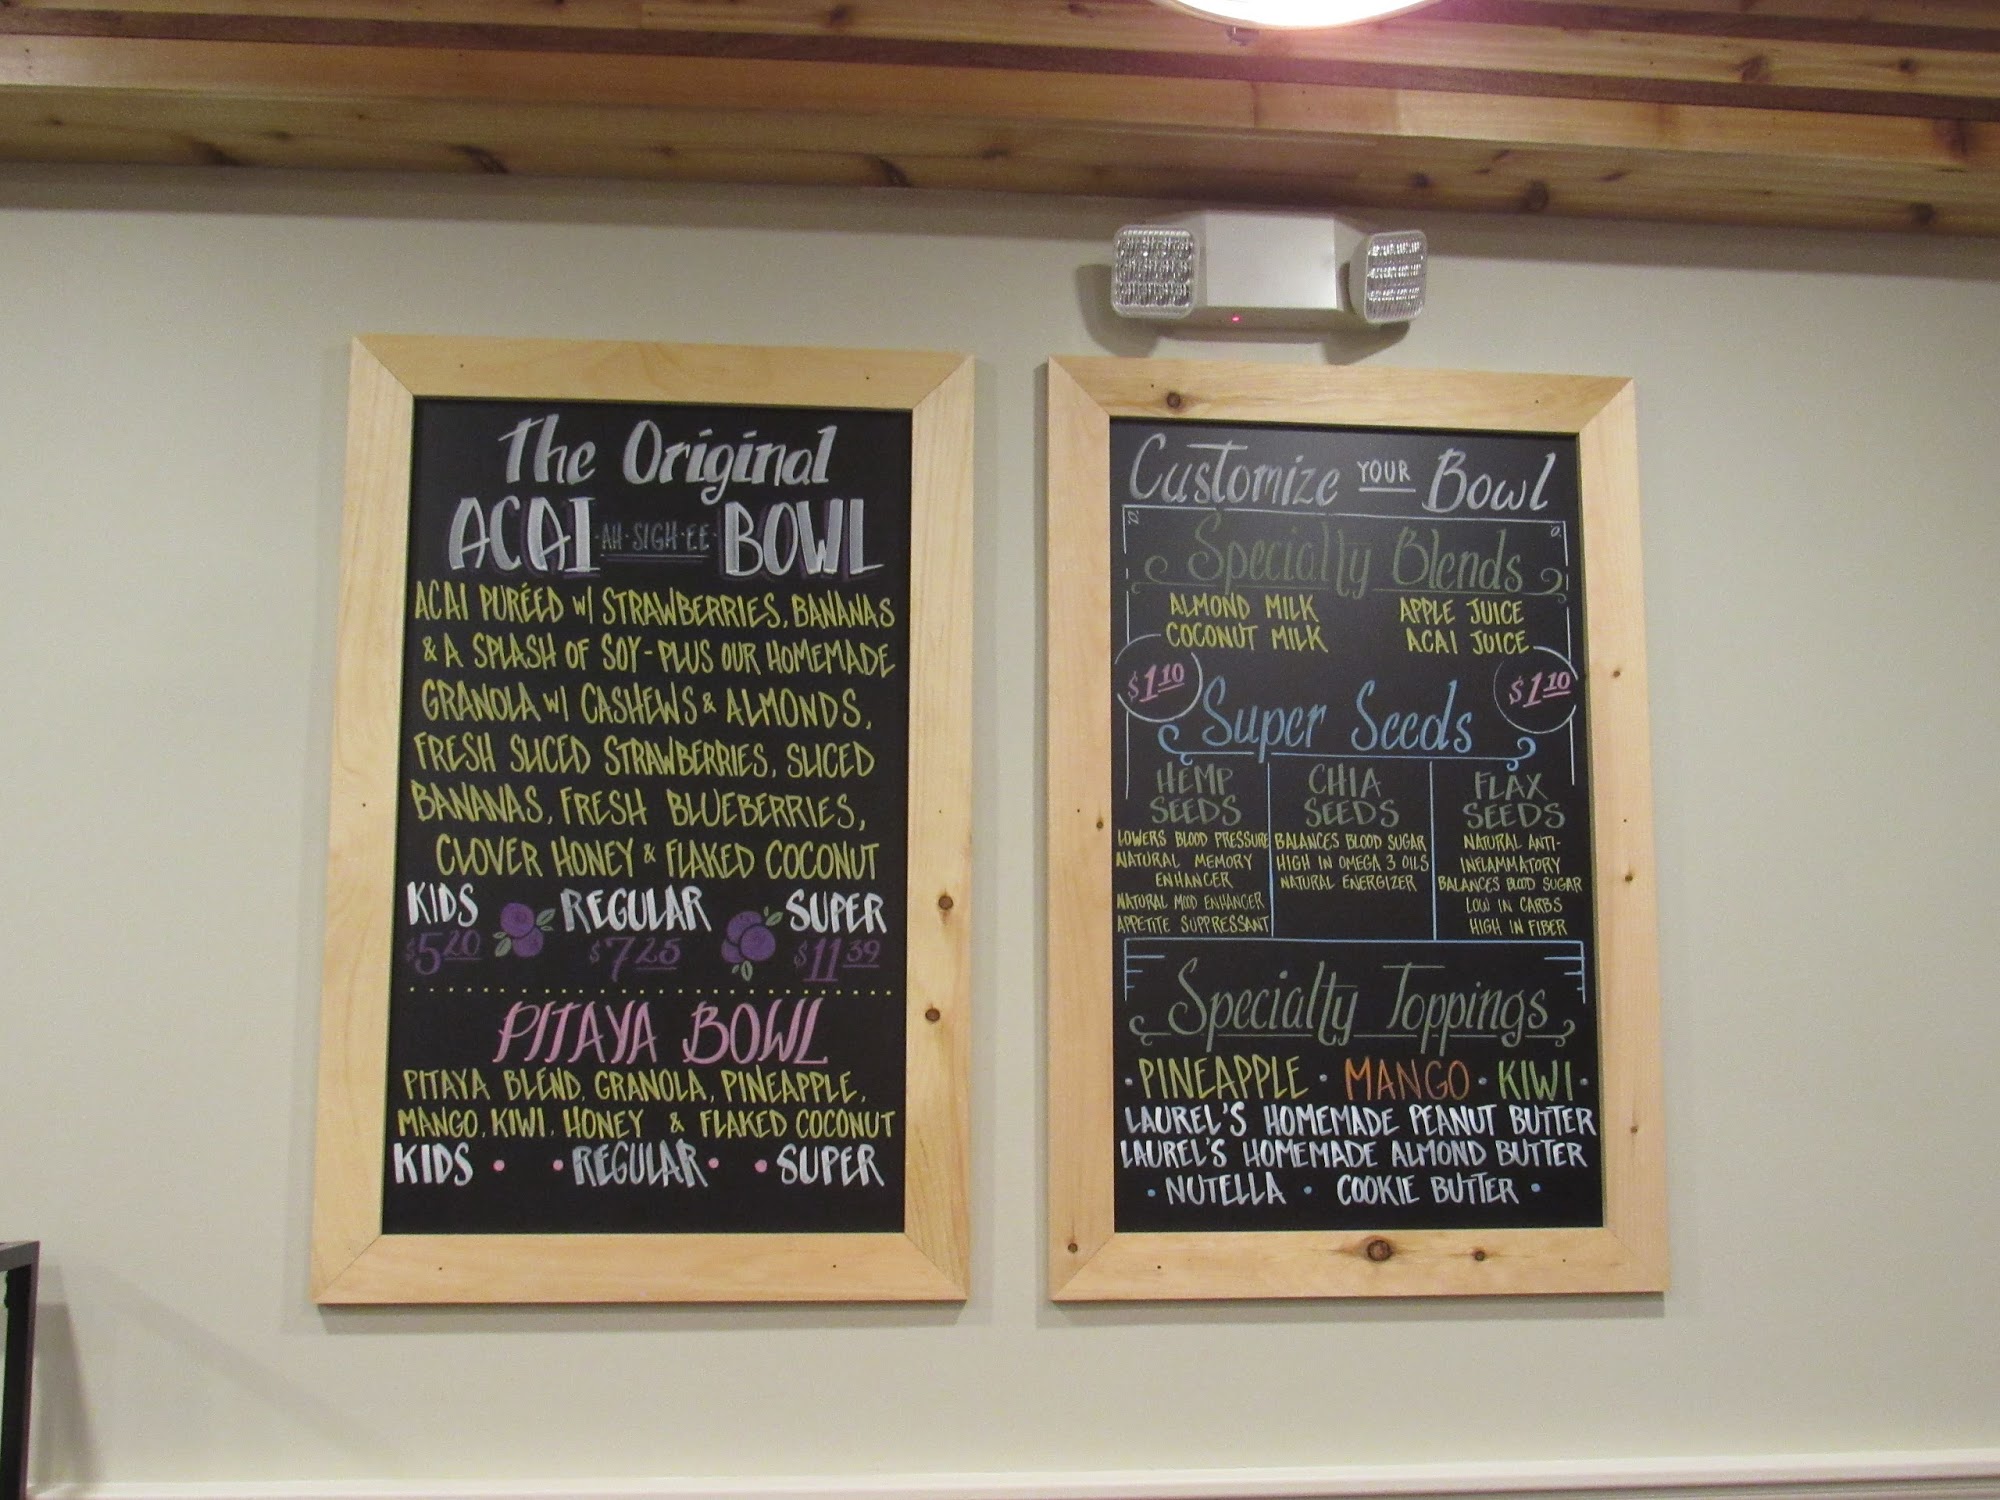 The Original
ACAI ·AH·SIGH·EE· BOWL
ACAI PURÉED W/ STRAWBERRIES, BANANAS
& A SPLASH OF SOY - PLUS OUR HOMEMADE
GRANOLA W/ CASHEWS & ALMONDS,
FRESH SLICED STRAWBERRIES, SLICED
BANANAS, FRESH BLUEBERRIES,
CLOVER HONEY & FLAKED COCONUT
KIDS REGULAR SUPER
$5.20 $7.25 $11.39
PITAYA BOWL
PITAYA BLEND, GRANOLA, PINEAPPLE,
MANGO, KIWI, HONEY & FLAKED COCONUT
KIDS · · REGULAR · · SUPER
Customize YOUR Bowl
Specialty Blends
ALMOND MILK APPLE JUICE
COCONUT MILK ACAI JUICE
$1.10 $1.10
Super Seeds
HEMP SEEDS
LOWERS BLOOD PRESSURE
NATURAL MEMORY
ENHANCER
NATURAL MOOD ENHANCER
APPETITE SUPPRESSANT
CHIA SEEDS
BALANCES BLOOD SUGAR
HIGH IN OMEGA 3 OILS
NATURAL ENERGIZER
FLAX SEEDS
NATURAL ANTI-
INFLAMMATORY
BALANCES BLOOD SUGAR
LOW IN CARBS
HIGH IN FIBER
Specialty Toppings
· PINEAPPLE · MANGO · KIWI ·
LAUREL'S HOMEMADE PEANUT BUTTER
LAUREL'S HOMEMADE ALMOND BUTTER
· NUTELLA · COOKIE BUTTER ·